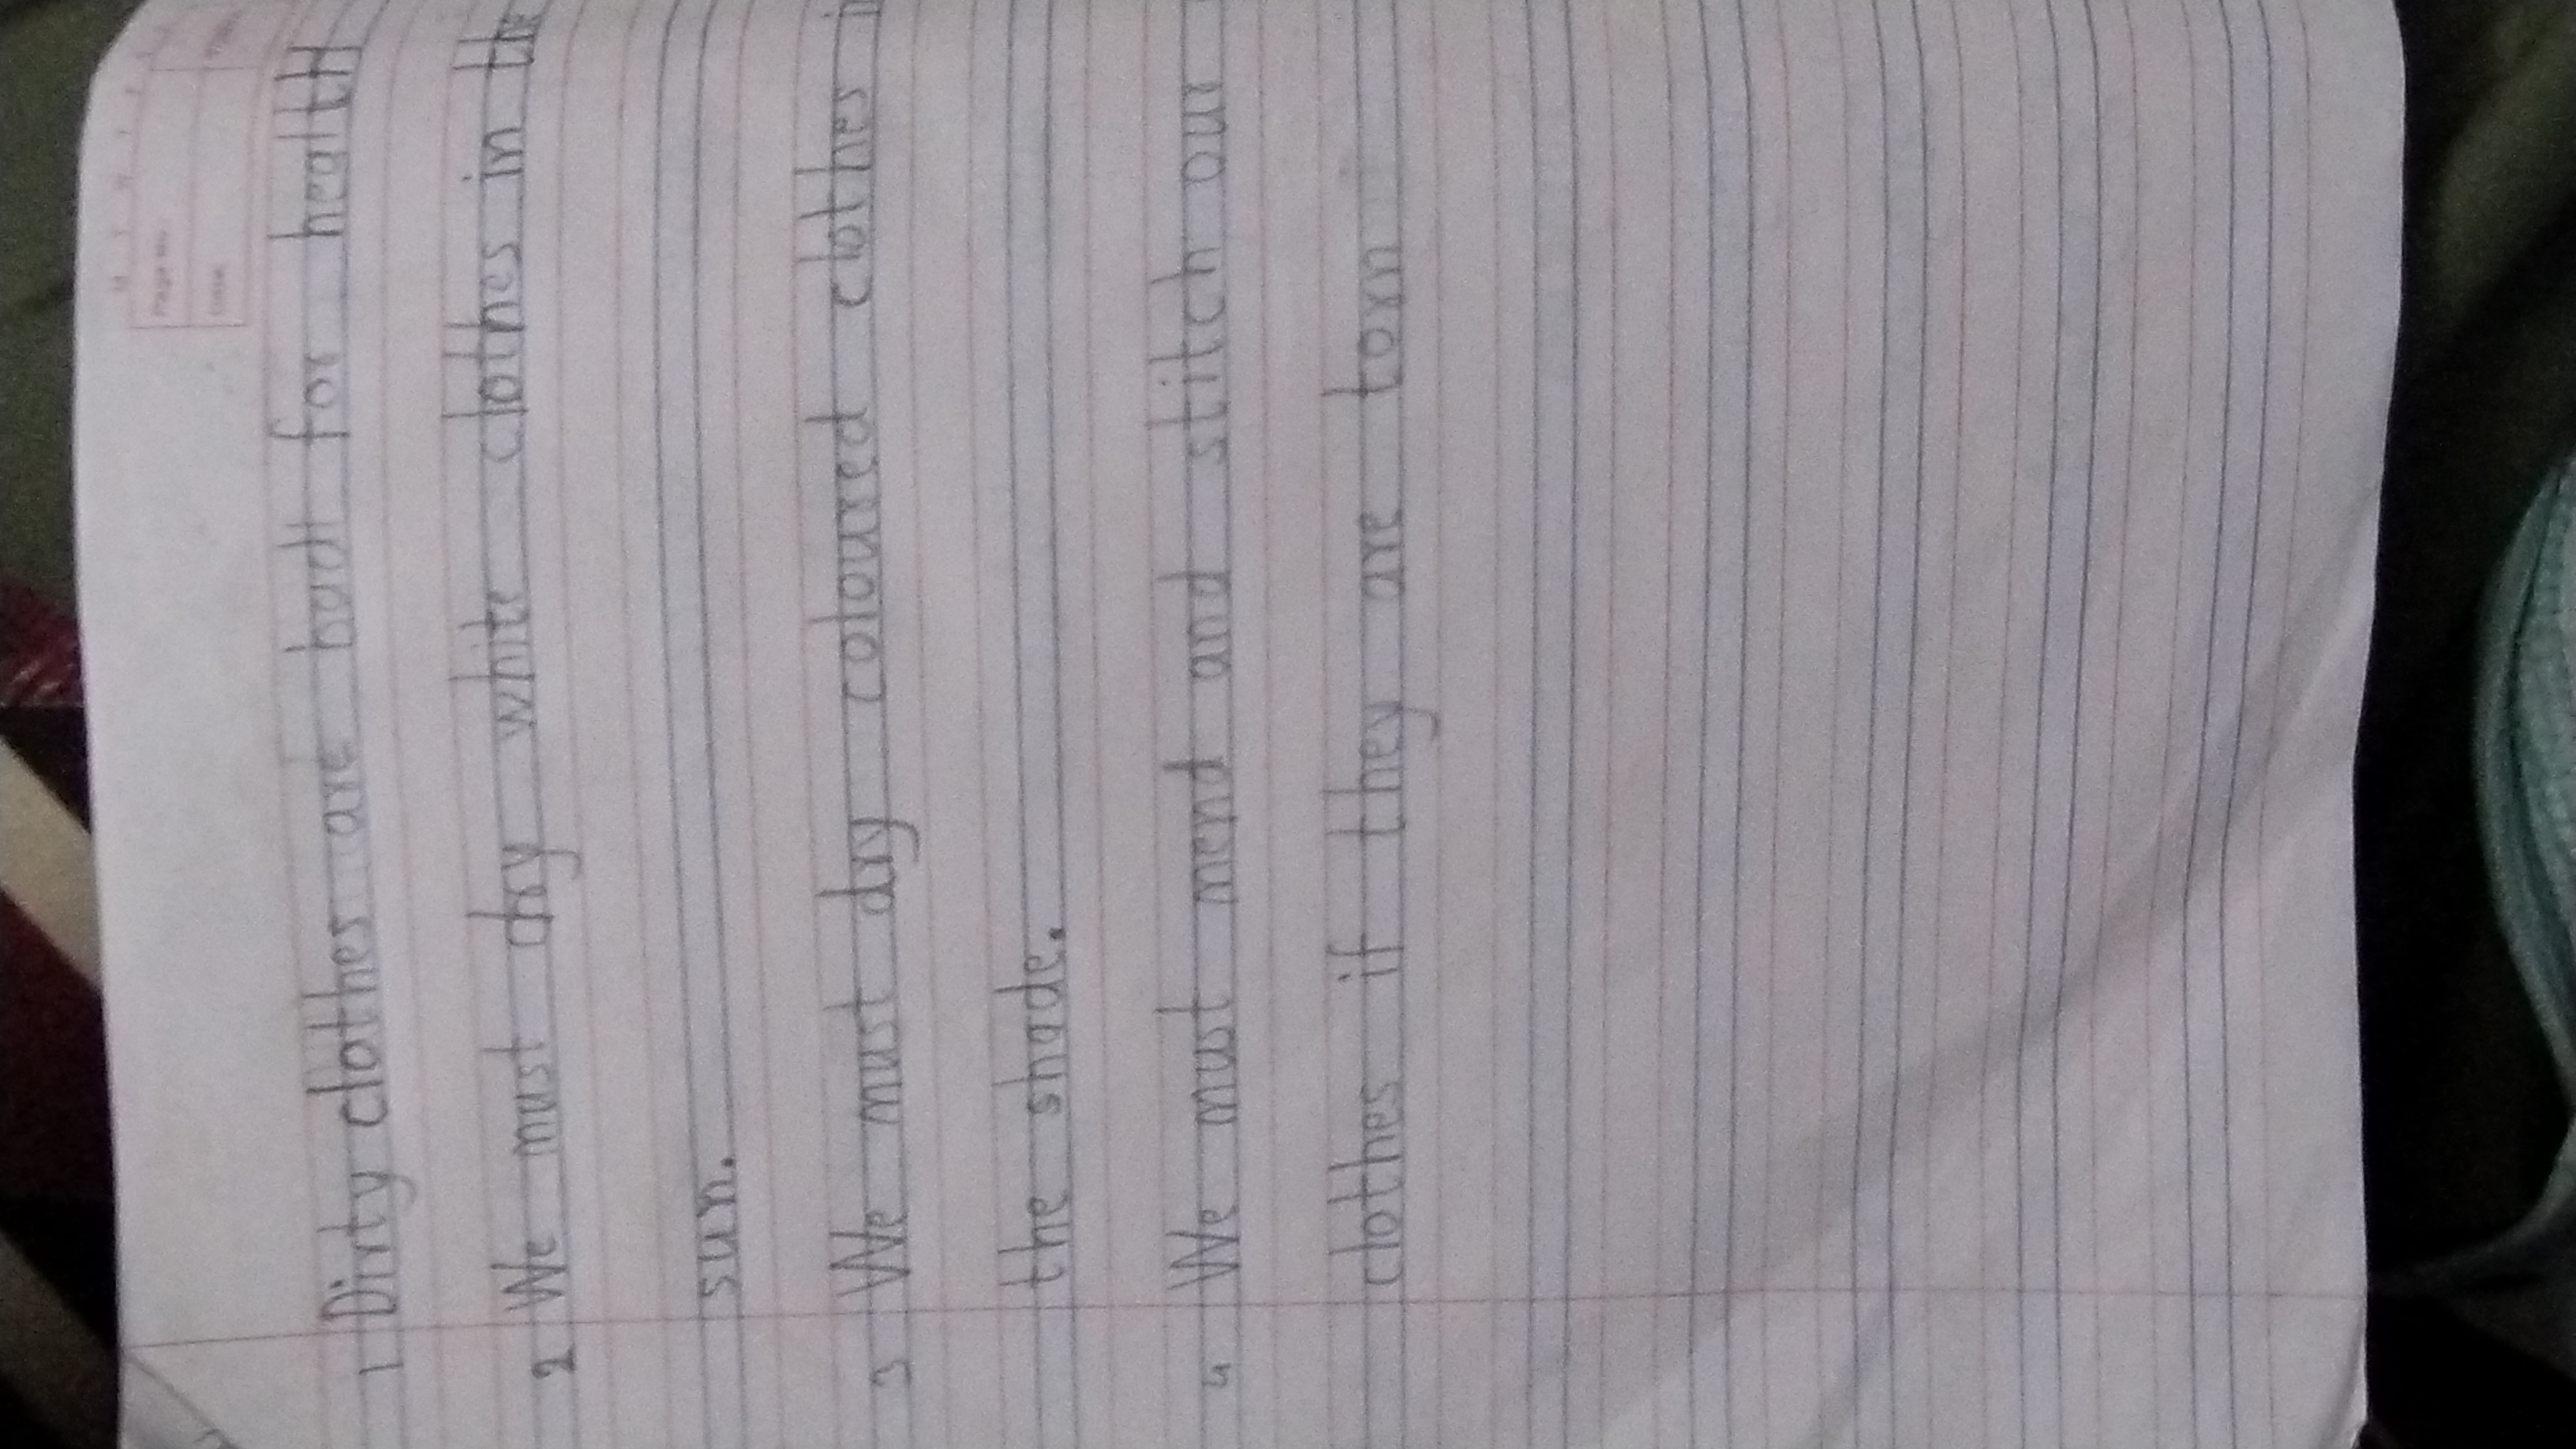 Page No.
Date
1 Dirty clothes are bad for health
2 We must dry white clothes in the
sun.
3 We must dry coloured clothes in
the shade.
4 We must mend and stitch our
clothes if they are torn